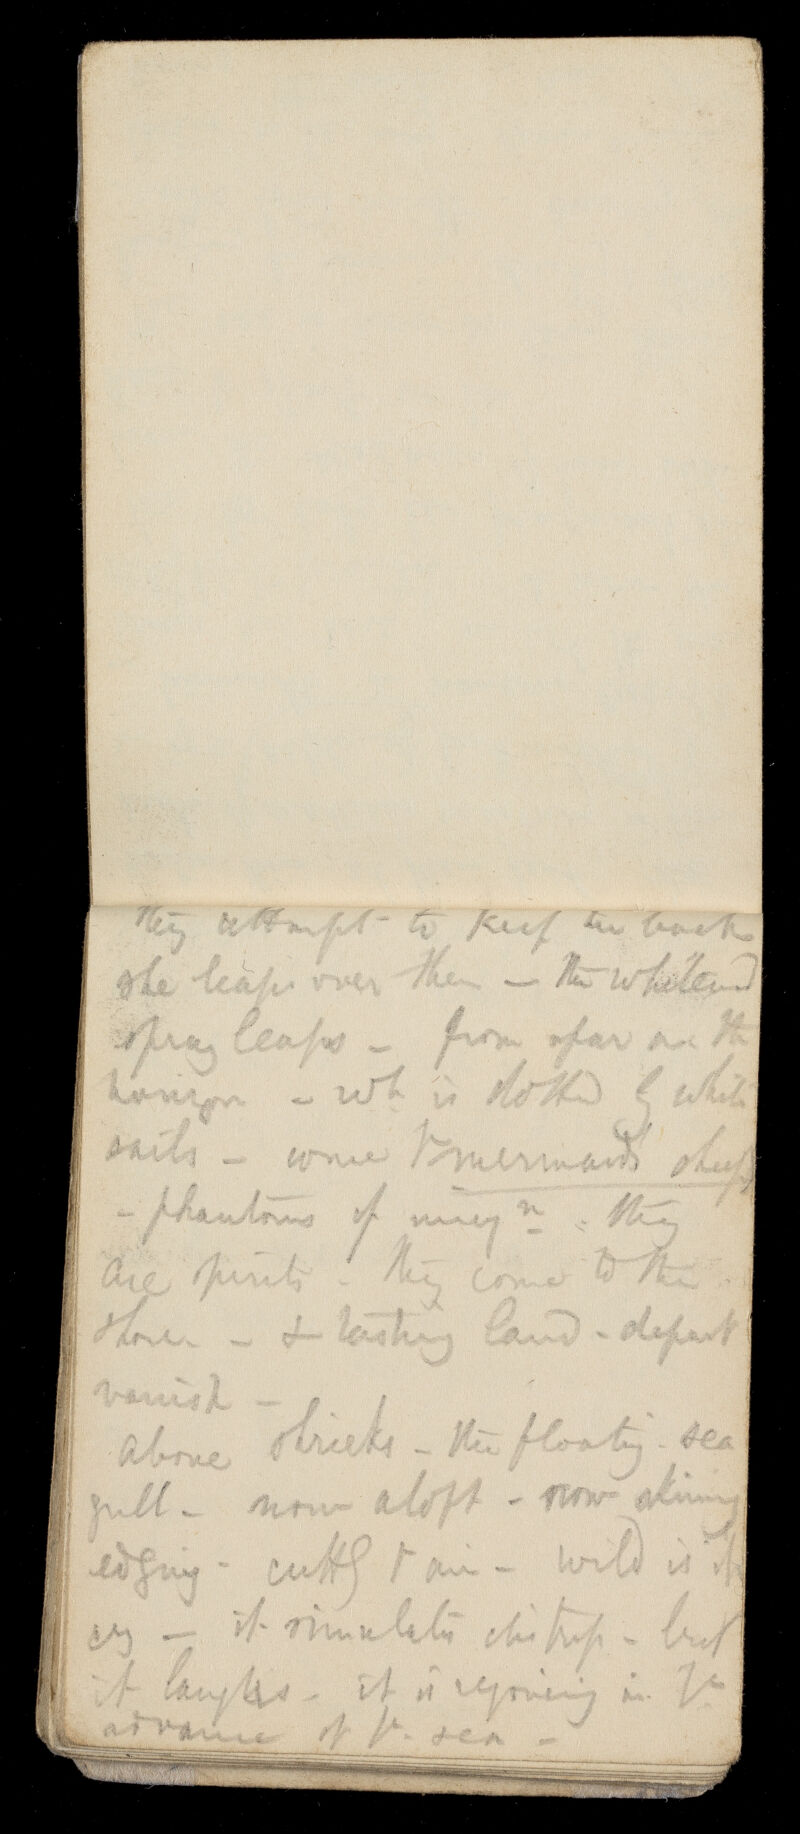 they attempt to keep her back
she leaps over them – the whitened
spray leaps – from afar on the
horizon – wh. is dotted by white
sails – come ye mermaids sheep
– phantoms of imagn. they
are spirits – they come to the
shore – & tasting land – depart
vanish –
Above shrieks – the floating sea
gull – now aloft – now skimming
edging – cuttg ye air – wild is its
cry – it simulates distress – but
it laughs – it is rejoicing in ye
advance of ye sea –